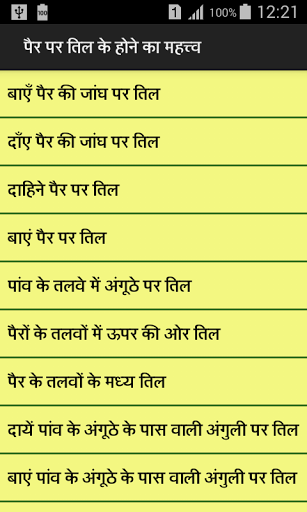 100
1
100%
12:21
पैर पर तिल के होने का महत्त्व
बाएँ पैर की जांघ पर तिल
दाँए पैर की जांघ पर तिल
दाहिने पैर पर तिल
बाएं पैर पर तिल
पांव के तलवे में अंगूठे पर तिल
पैरों के तलवों में ऊपर की ओर तिल
पैर के तलवों के मध्य तिल
दायें पांव के अंगूठे के पास वाली अंगुली पर तिल
बाएं पांव के अंगूठे के पास वाली अंगुली पर तिल